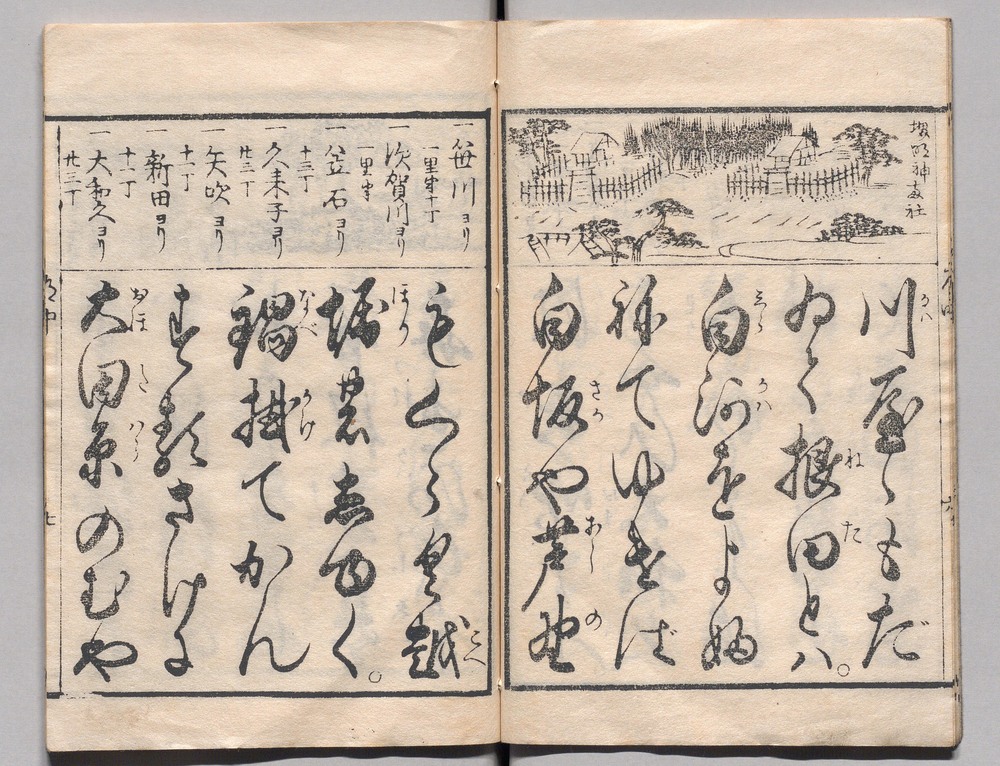 堺明神両社
川屋しもだ
かハ
ゐく根田とハ。
ねた
白河をよ婦
しらかハ
祢てゆけば
白坂や芦野
さか あしの
一笹川ヨリ
一里半十丁
一須賀川ヨリ
一里半
一笠石ヨリ
十三丁
一久来子ヨリ
廿三丁
一矢吹ヨリ
十丁
一新田ヨリ
十一丁
一大和久ヨリ
廿三丁
越
こへ
堀農志ゆく。
ほり
鍋掛てかん
なべ かけ
すゝ類さけに
大田原のむや
おほたハら
七